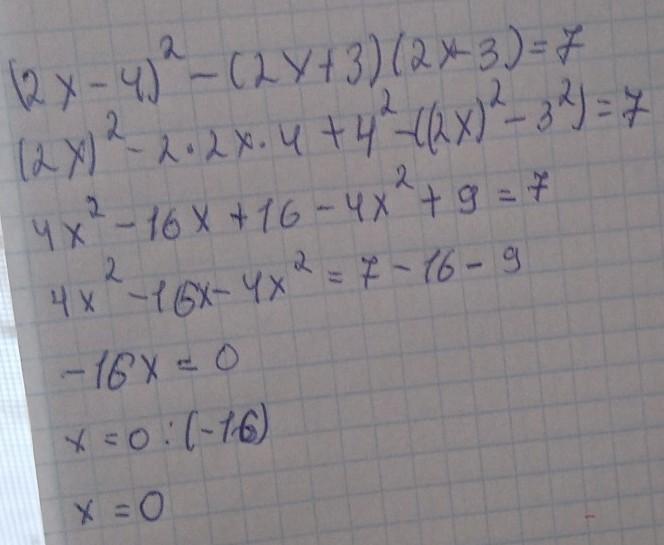 (2x-4)² - (2x+3)(2x-3) = 7
(2x)² - 2·2x·4 + 4² - ((2x)² - 3²) = 7
4x² - 16x + 16 - 4x² + 9 = 7
4x² - 16x - 4x² = 7 - 16 - 9
-16x = 0
x = 0 : (-16)
x = 0